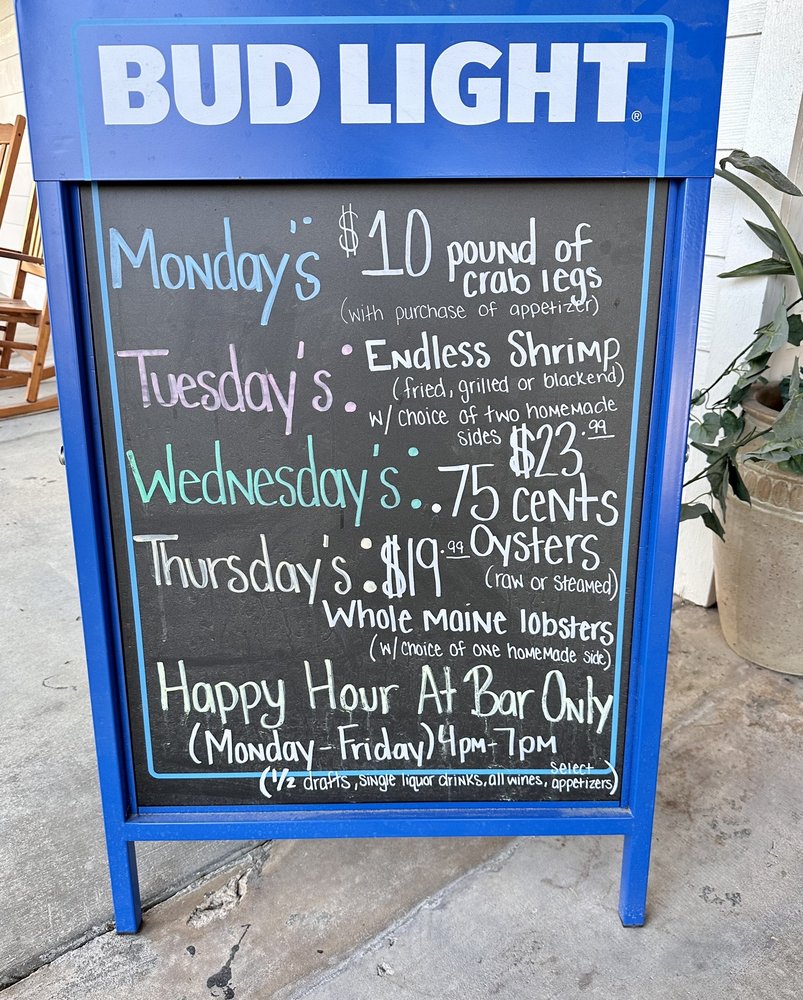 BUD LIGHT®
Monday's: $10 pound of
crab legs
(with purchase of appetizer)
Tuesday's: Endless Shrimp
(fried, grilled or blackend)
w/ choice of two homemade
sides $23.99
Wednesday's: .75 cents
Oysters
(raw or steamed)
Thursday's: $19.99
Whole Maine lobsters
(w/ choice of one homemade side)
Happy Hour At Bar Only
(Monday-Friday) 4pm-7pm
(1/2 drafts, single liquor drinks, all wines, select appetizers)